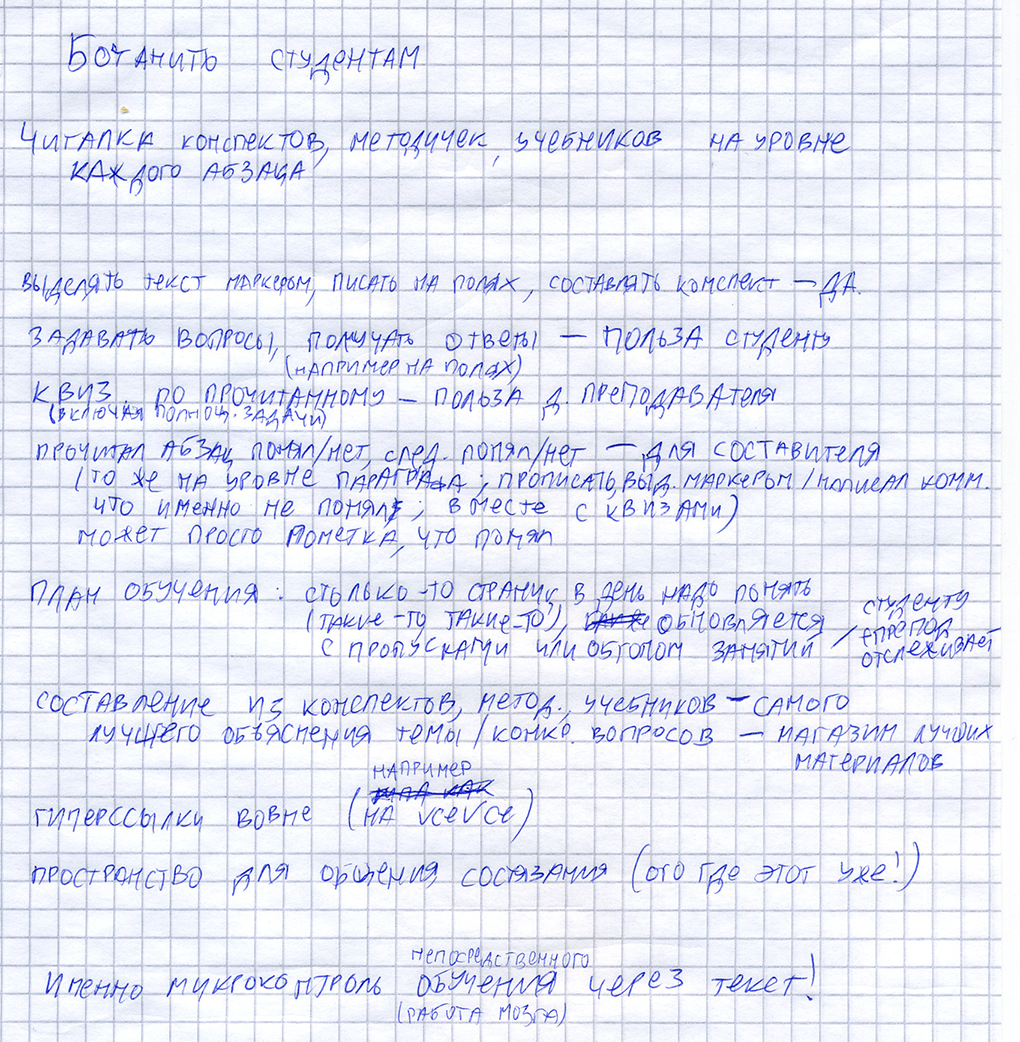 Ботанить студентам
Читалка конспектов, методичек, учебников на уровне
каждого абзаца
выделять текст маркером, писать на полях, составлять конспект — да.
задавать вопросы, получать ответы — польза студенту
(например на полях)
квиз по прочитанному — польза д. преподавателя
(включая полноц. задачи)
прочитал абзац понял/нет, след. понял/нет — для составителя
(то же на уровне параграфа, прописать, выд. маркером / написал комм.
что именно не понял, вместе с квизами)
может просто пометка, что понял
план обучения: столько-то страниц в день надо понять
(такие-то такие-то), обновляется
с пропусками или обгоном занятий / студенту
+препод
отслеживает
составление из конспектов, метод., учебников — самого
лучшего объяснения темы / конкр. вопросов — магазин лучших
материалов
например
гиперссылки вовне (на vcevce)
пространство для общения, состязания (ого где этот уже!)
непосредственного
Именно микроконтроль обучения через текст!
(работа мозга)